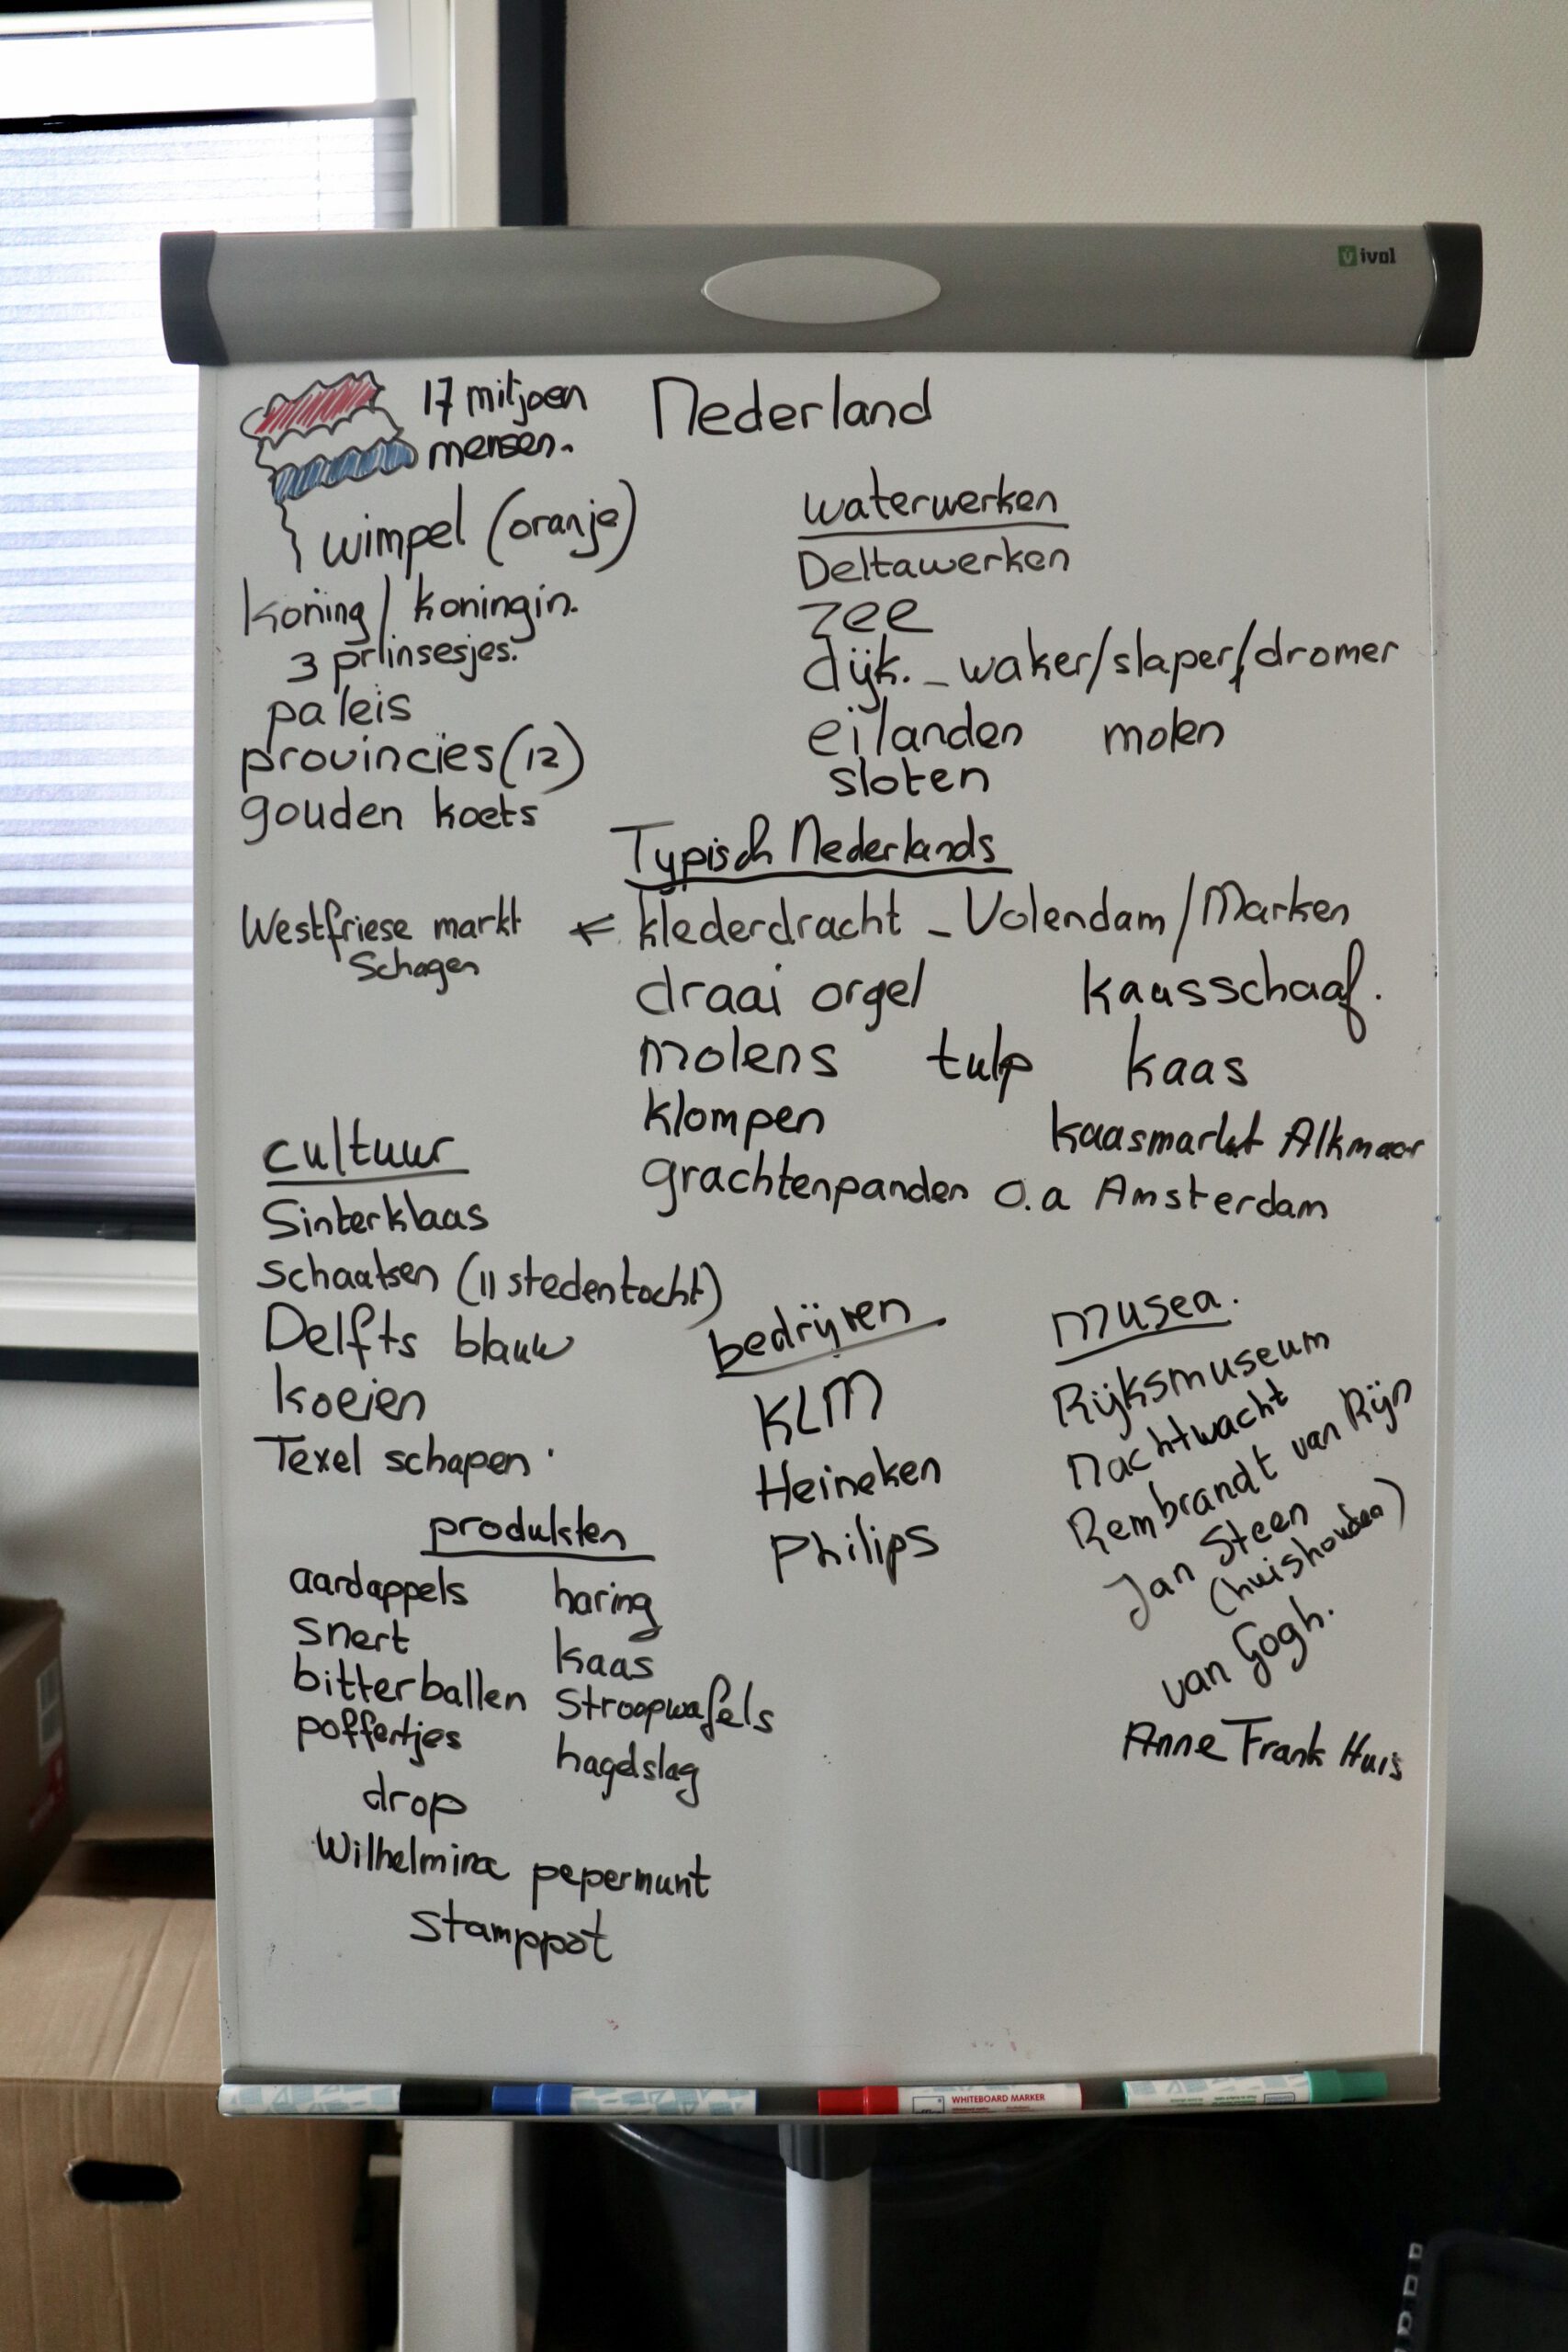 ivol
17 miljoen
mensen.
Nederland
wimpel (oranje)
koning / koningin.
3 prlinsesjes.
paleis
provincies (12)
gouden koets
waterwerken
Deltawerken
zee
dijk. - waker/slaper/dromer
eilanden molen
sloten
Typisch Nederlands
Westfriese markt ← klederdracht - Volendam / Marken
Schagen
draai orgel kaasschaaf.
molens tulp kaas
klompen kaasmarkt Alkmaar
grachtenpanden o.a Amsterdam
cultuur
Sinterklaas
schaatsen (11 stedentocht)
Delfts blauw
koeien
Texel schapen
bedrijven
KLM
Heineken
Philips
musea.
Rijksmuseum
Nachtwacht
Rembrandt van Rijn
Jan Steen
(huishouden)
van Gogh.
Anne Frank Huis
produkten
aardappels haring
snert kaas
bitterballen stroopwafels
poffertjes hagelslag
drop
Wilhelmina pepermunt
stamppot
WHITEBOARD MARKER